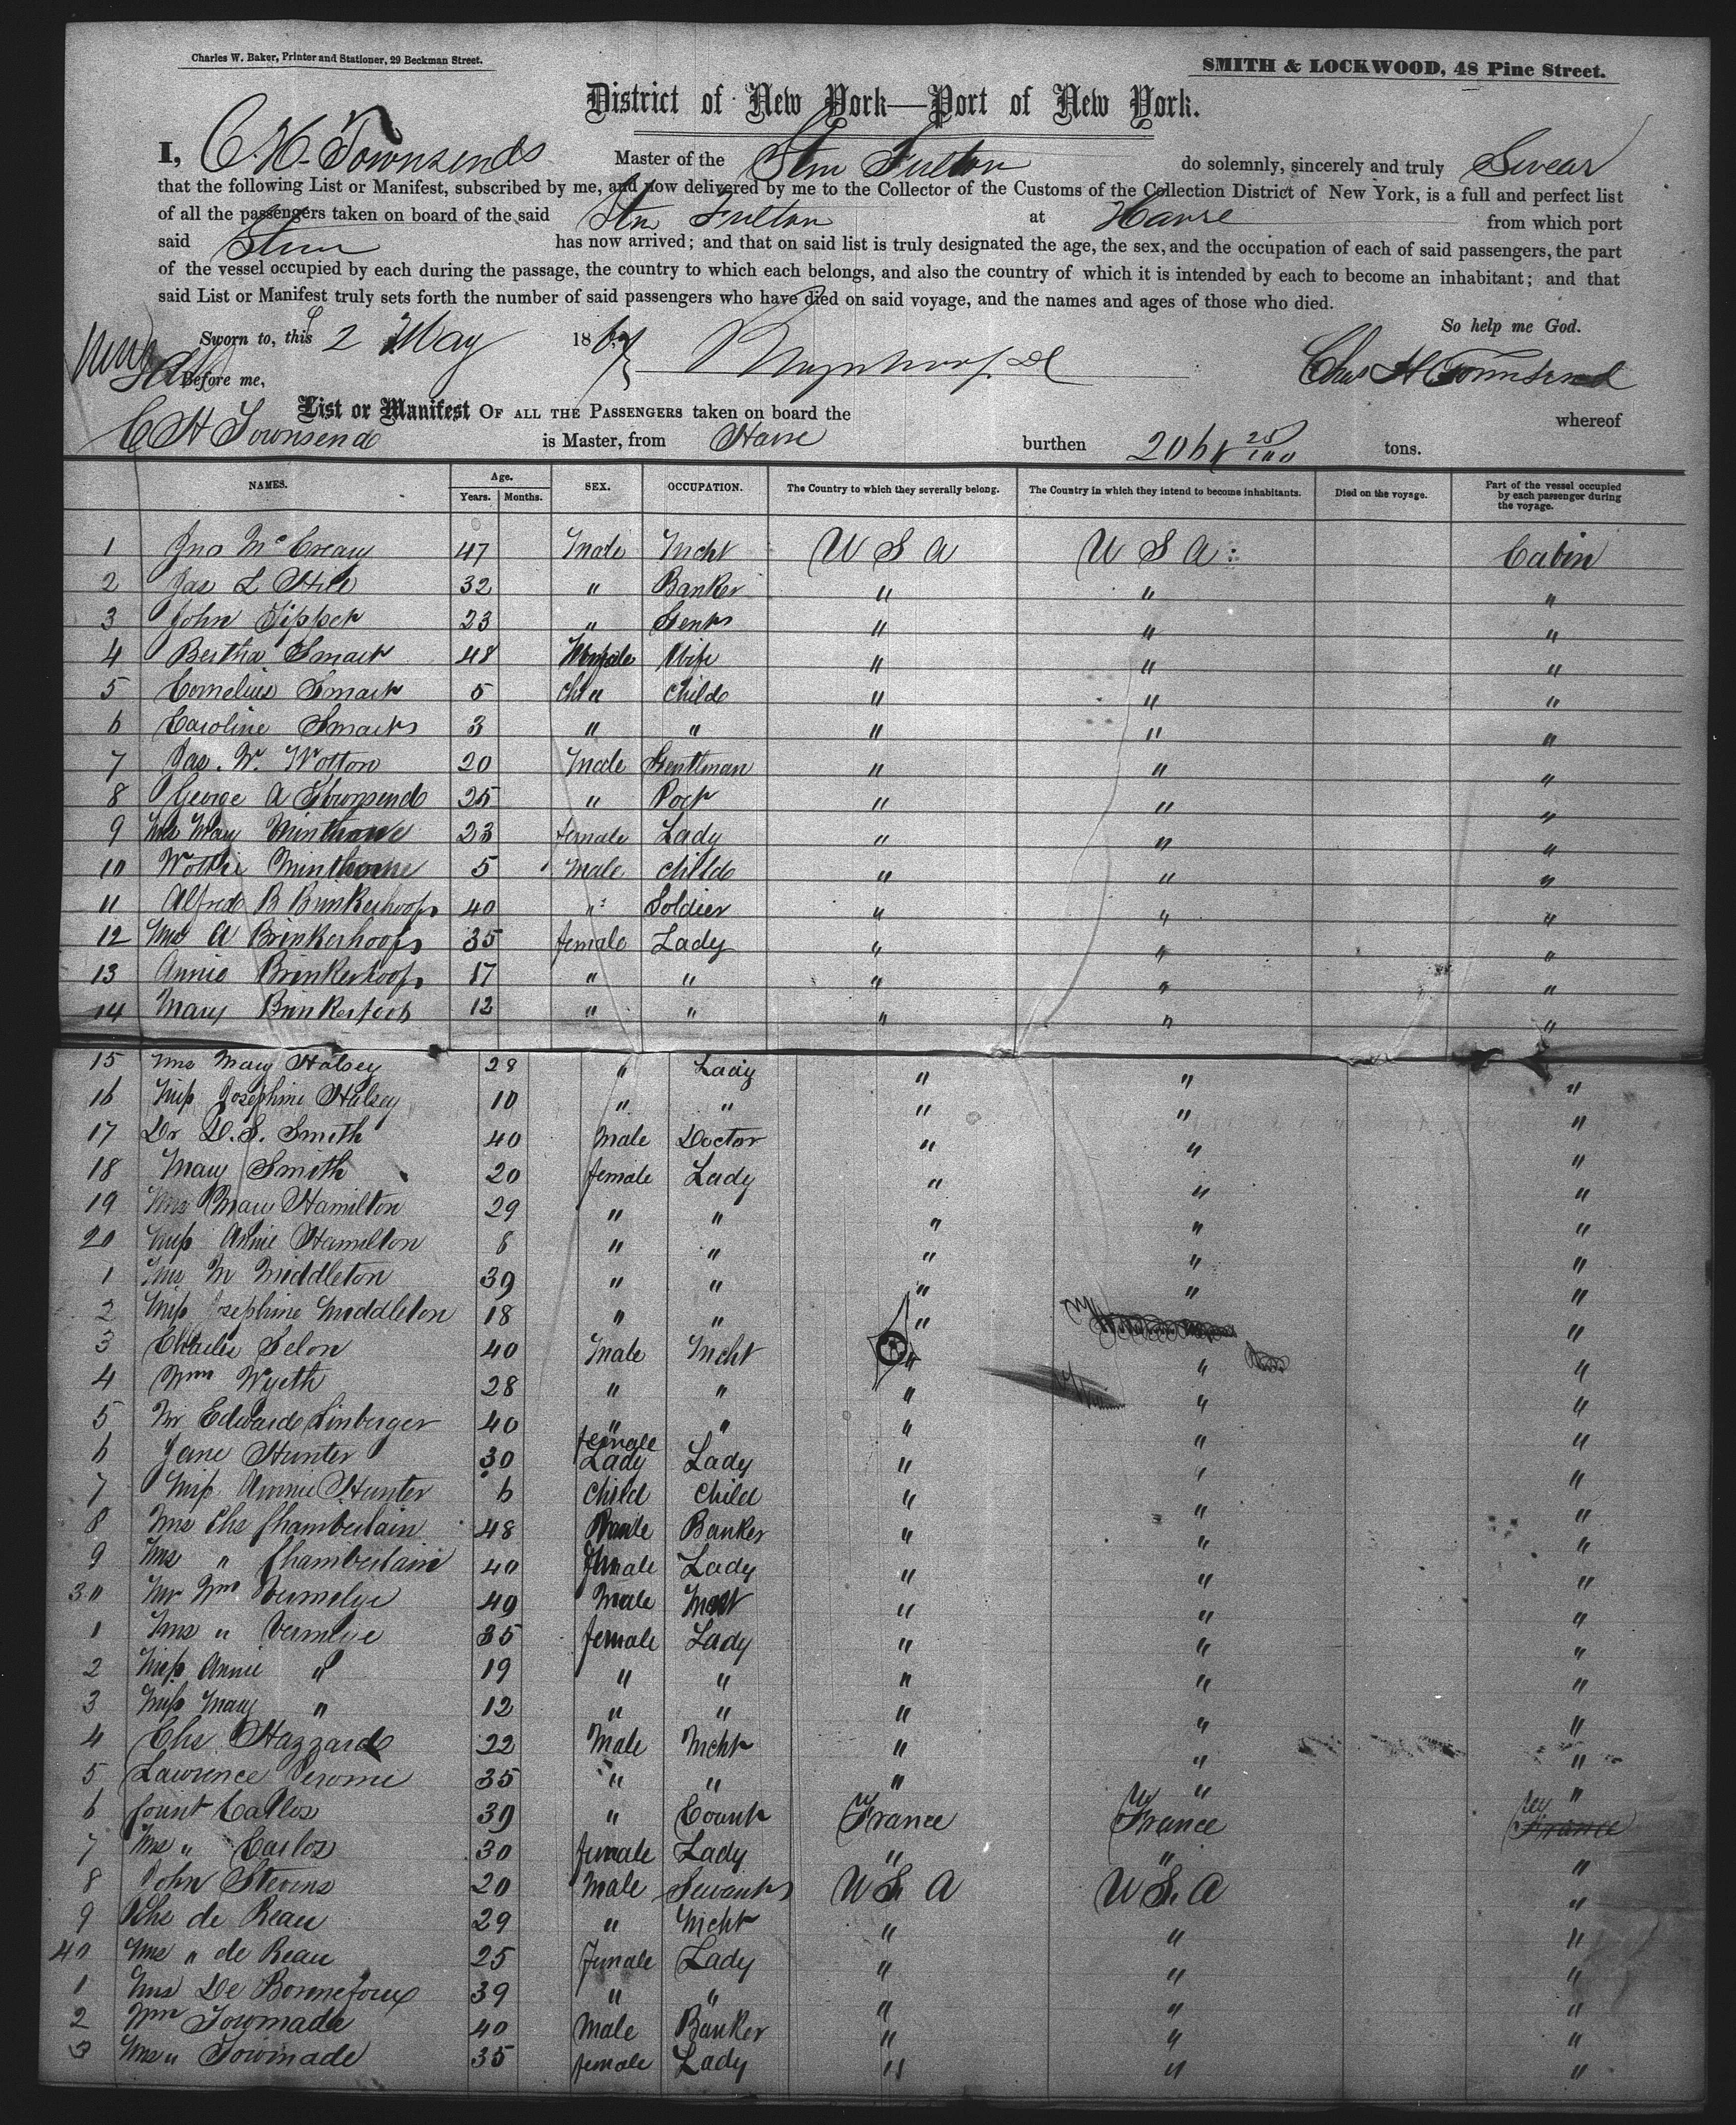 Charles W. Baker, Printer and Stationer, 29 Beekman Street.
SMITH & LOCKWOOD, 48 Pine Street.
District of New York—Port of New York.
I, C. H. Townsend Master of the Stm Fulton do solemnly, sincerely and truly Swear
that the following List or Manifest, subscribed by me, and now delivered by me to the Collector of the Customs of the Collection District of New York, is a full and perfect list
of all the passengers taken on board of the said Stm Fulton at Havre from which port
said Stmr has now arrived; and that on said list is truly designated the age, the sex, and the occupation of each of said passengers, the part
of the vessel occupied by each during the passage, the country to which each belongs, and also the country of which it is intended by each to become an inhabitant; and that
said List or Manifest truly sets forth the number of said passengers who have died on said voyage, and the names and ages of those who died.
So help me God.
Sworn to, this 2 May 186
Before me, Chas H Townsend
List or Manifest OF ALL THE PASSENGERS taken on board the whereof
C H Townsend is Master, from Havre burthen 25/100 tons.
NAMES. Age. Years. Months. SEX. OCCUPATION. The Country to which they severally belong. The Country in which they intend to become inhabitants. Died on the voyage. Part of the vessel occupied by each passenger during the voyage.
1 Jno McCreary 47 Male Mcht U S A U S A Cabin
2 Jas L Hill 32 " Banker " " "
3 John 23 " Gent " " "
4 Bertha Smart 48 Wife " " "
5 Cornelius Smart 5 Child " " "
6 Caroline Smart 3 " " " " "
7 Jas. W. Wotton 20 Male Gentlman " " "
8 George A Townsend 25 " Poet " " "
9 Mrs May Minthorne 23 female Lady " " "
10 Minthorne 5 Male Child " " "
11 Alfred B Brinkerhoof 40 " Soldier " " "
12 Mrs A Brinkerhoof 35 female Lady " " "
13 Annie Brinkerhoof 17 " " " " "
14 Mary Brinkerhoof 12 " " " " "
15 Mrs Mary Halsey 28 " Lady " " "
16 Miss Josephine Halsey 10 " " " " "
17 Dr D. S. Smith 40 Male Doctor " " "
18 Mary Smith 20 female Lady " " "
19 Mrs Mary Hamilton 29 " " " " "
20 Miss Annie Hamilton 8 " " " " "
1 Mrs M Middleton 39 " " " " "
2 Miss Josephine Middleton 18 " " " "
3 Charles Selon 40 Male Mcht " " "
4 Wm Wyeth 28 " " " " "
5 Mr Edward Linberger 40 " " " " "
6 Jane Hunter 30 female Lady Lady " " "
7 Miss Annie Hunter 6 Child Child " " "
8 Chs Chamberlain 48 Male Banker " " "
9 Mrs " Chamberlain 40 Female Lady " " "
30 Mr Wm Vermelye 49 Male Mcht " " "
1 Mrs " Vermelye 35 female Lady " " "
2 Miss Annie " 19 " " " " "
3 Miss Mary " 12 " " " " "
4 Chs Hazzard 22 Male Mcht " " "
5 Lawrence Jerome 35 " " " " "
6 Count Carlos 39 " Count France France
7 Mrs " Carlos 30 female Lady " " "
8 John Stevens 20 Male Servant U S A U S A "
9 Chs de Beau 29 " Mcht " " "
40 Mrs " de Beau 25 female Lady " " "
1 Mrs De Bonnefoux 39 " " " " "
2 Wm Towmade 40 Male Banker " " "
3 Mrs " Towmade 35 female Lady " " "